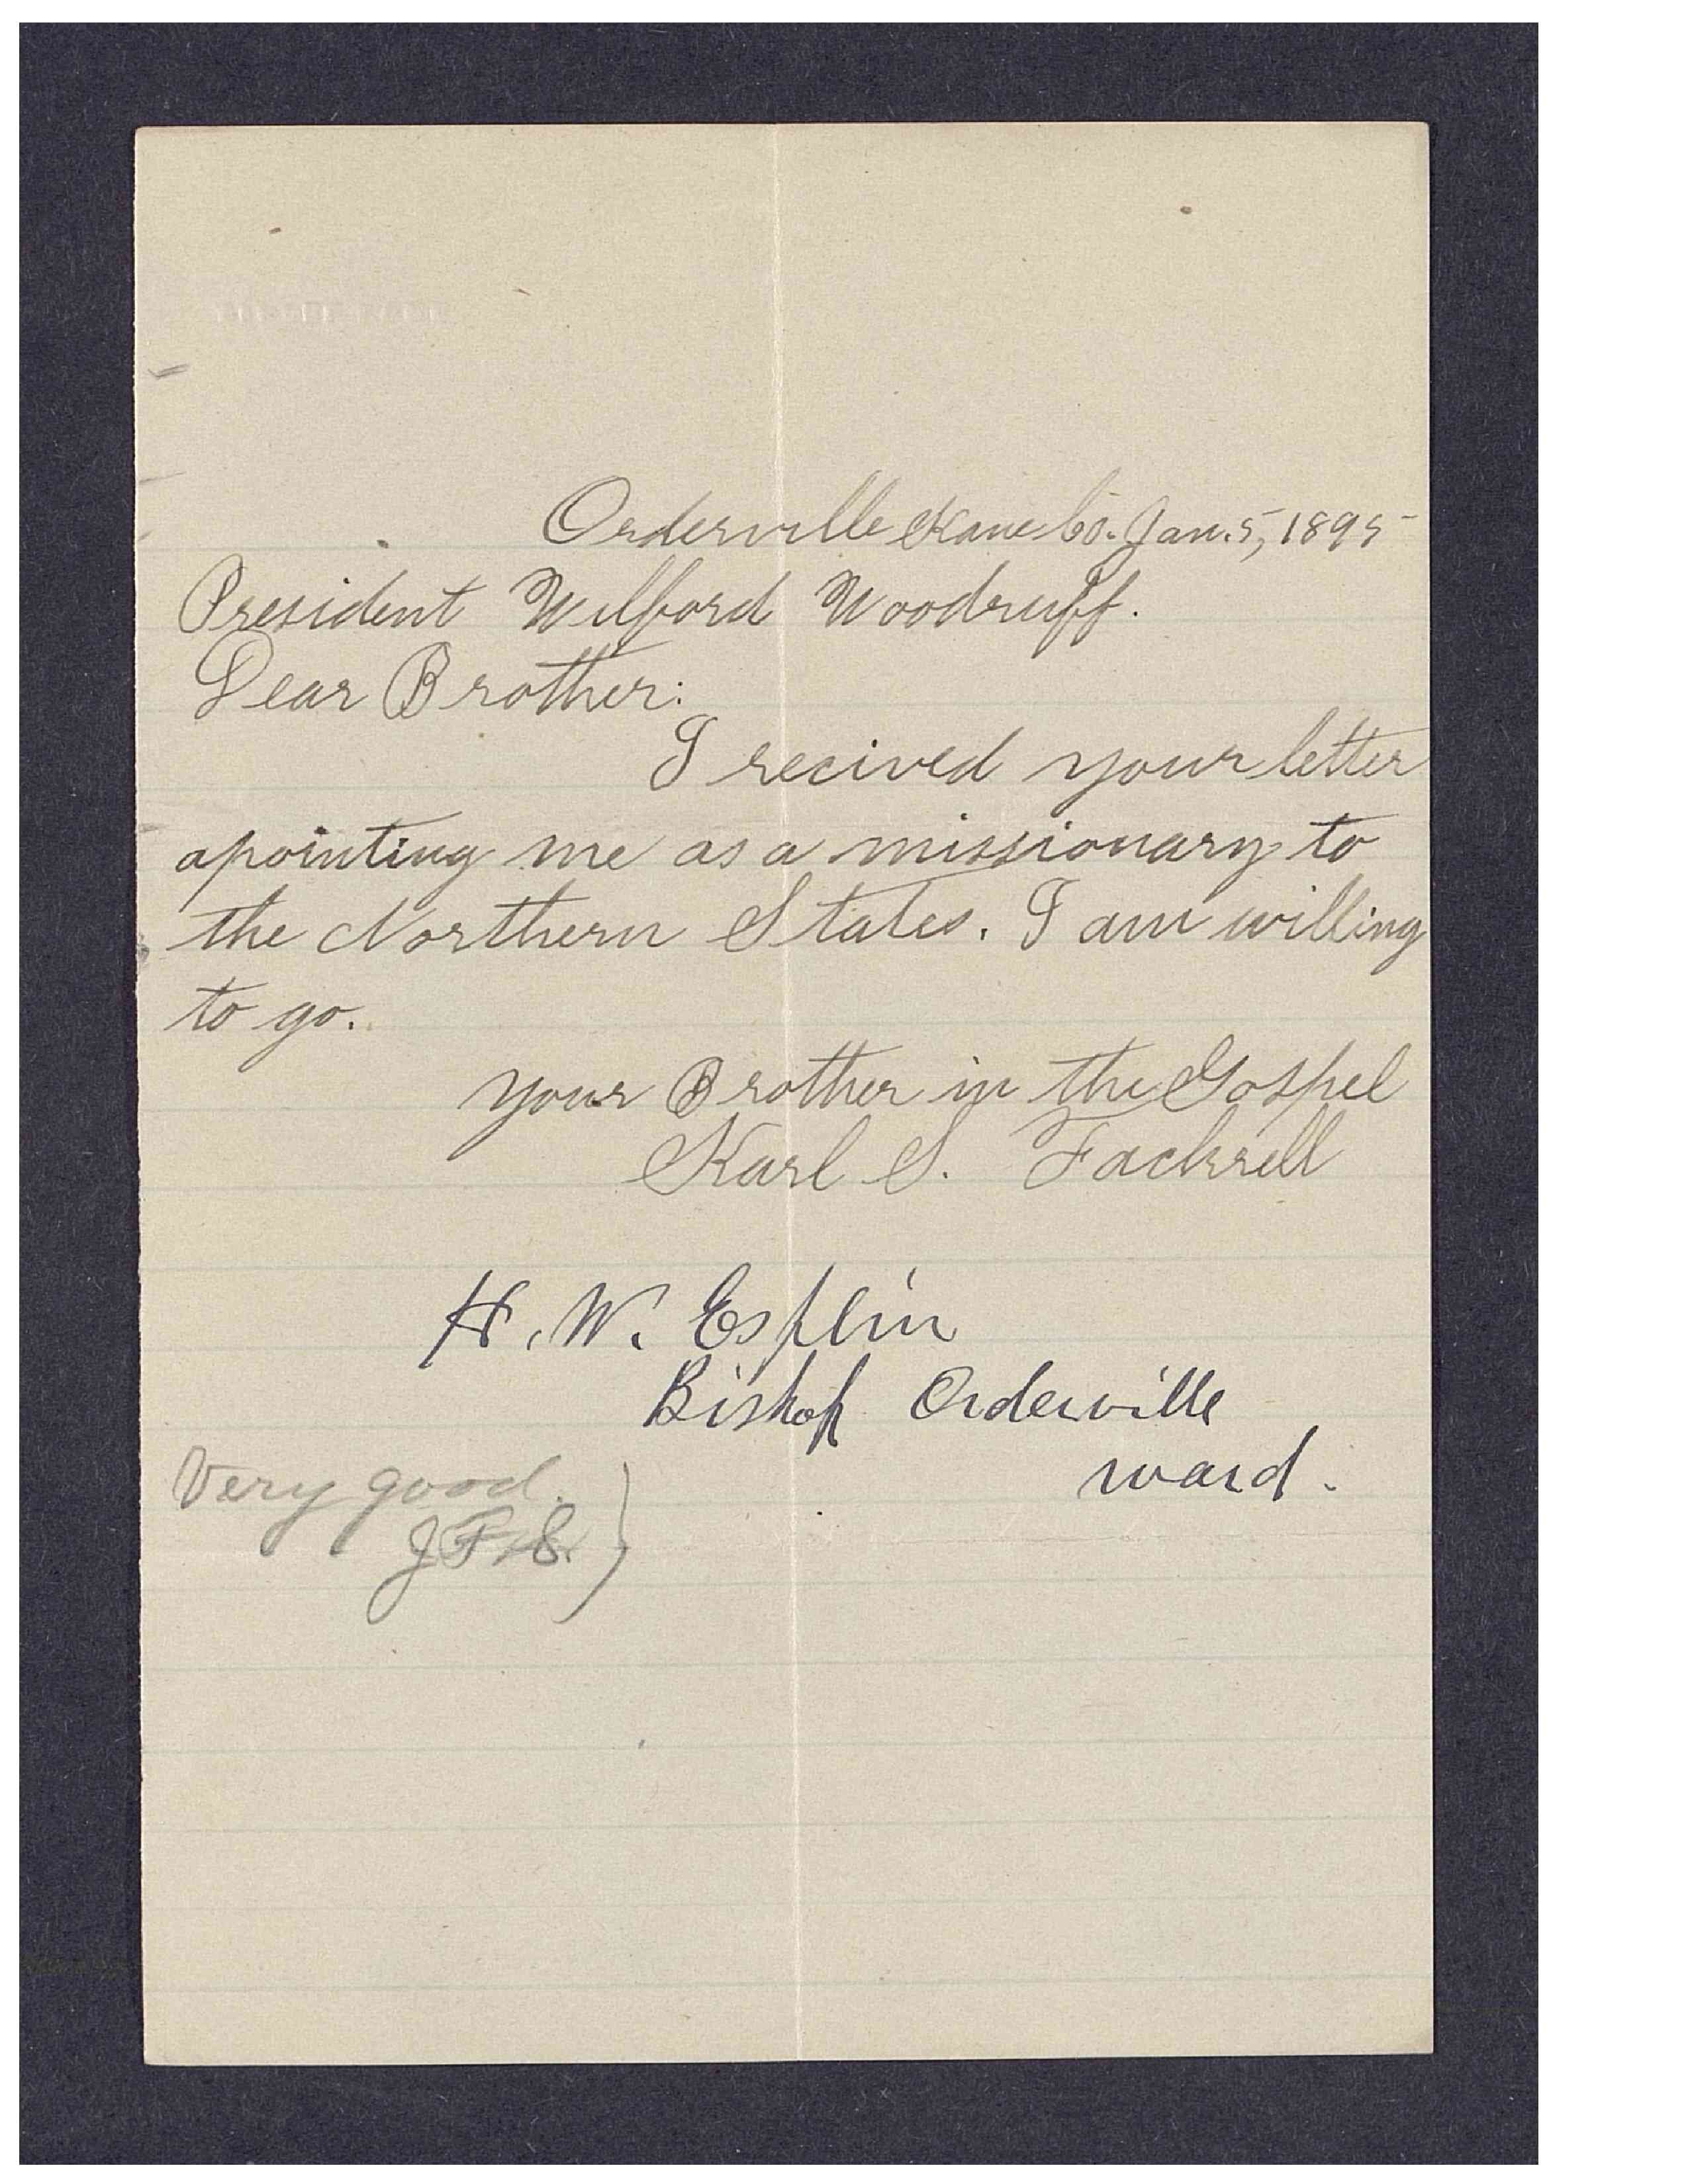 Orderville Kane Co. Jan. 5, 1895
President Wilford Woodruff.
Dear Brother:
I recived your letter
apointing me as a missionary to
the Northern States. I am willing
to go.
your Brother in the Gospel
Karl S. Fackrell
H. W. Esplin
Bishop Orderville
ward.
Very good.
J F. S.